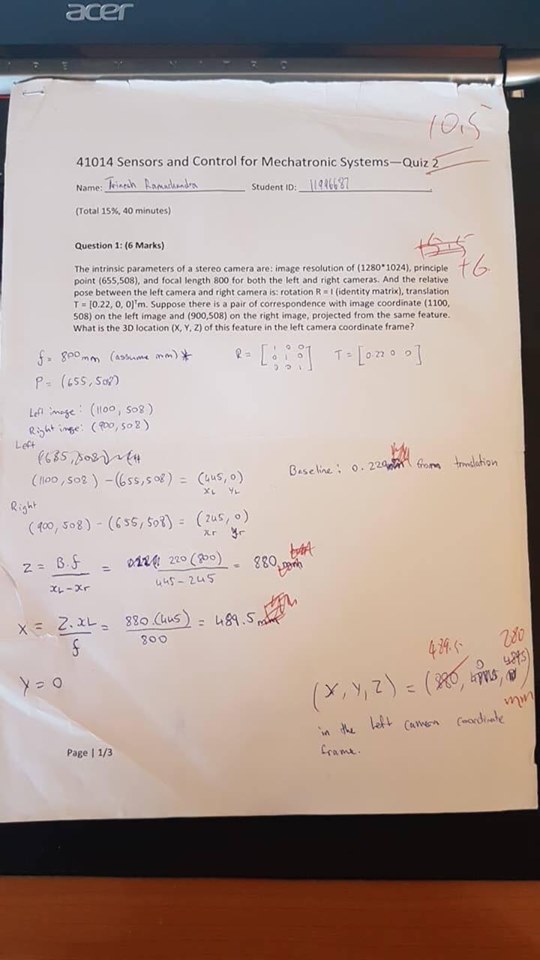 acer
10.5
41014 Sensors and Control for Mechatronic Systems—Quiz 2
Name: Trinesh Ramachandra Student ID:
(Total 15%, 40 minutes)
Question 1: (6 Marks)
+6
The intrinsic parameters of a stereo camera are: image resolution of (1280*1024), principle
point (655,508), and focal length 800 for both the left and right cameras. And the relative
pose between the left camera and right camera is: rotation R = I (identity matrix), translation
T = [0.22, 0, 0]ᵀm. Suppose there is a pair of correspondence with image coordinate (1100,
508) on the left image and (900,508) on the right image, projected from the same feature.
What is the 3D location (X, Y, Z) of this feature in the left camera coordinate frame?
f = 800mm (assume mm) * R = [ 1 0 0
0 1 0
0 0 1 ] T = [0.22 0 0]
P = (655, 508)
Left image: (1100, 508)
Right image: (900, 508)
Left
(685, 508)
(1100, 508) - (655, 508) = (445, 0)
xL yL
Baseline: 0.220 from translation
Right
(900, 508) - (655, 508) = (245, 0)
xr yr
Z = B.f / xL - xr = 220 (800) / 445 - 245 = 880
X = Z.xL / f = 880 (445) / 800 = 489.5
Y = 0
489.5 280
(X, Y, Z) = (880, 0
mm
in the left camera coordinate
frame.
Page | 1/3